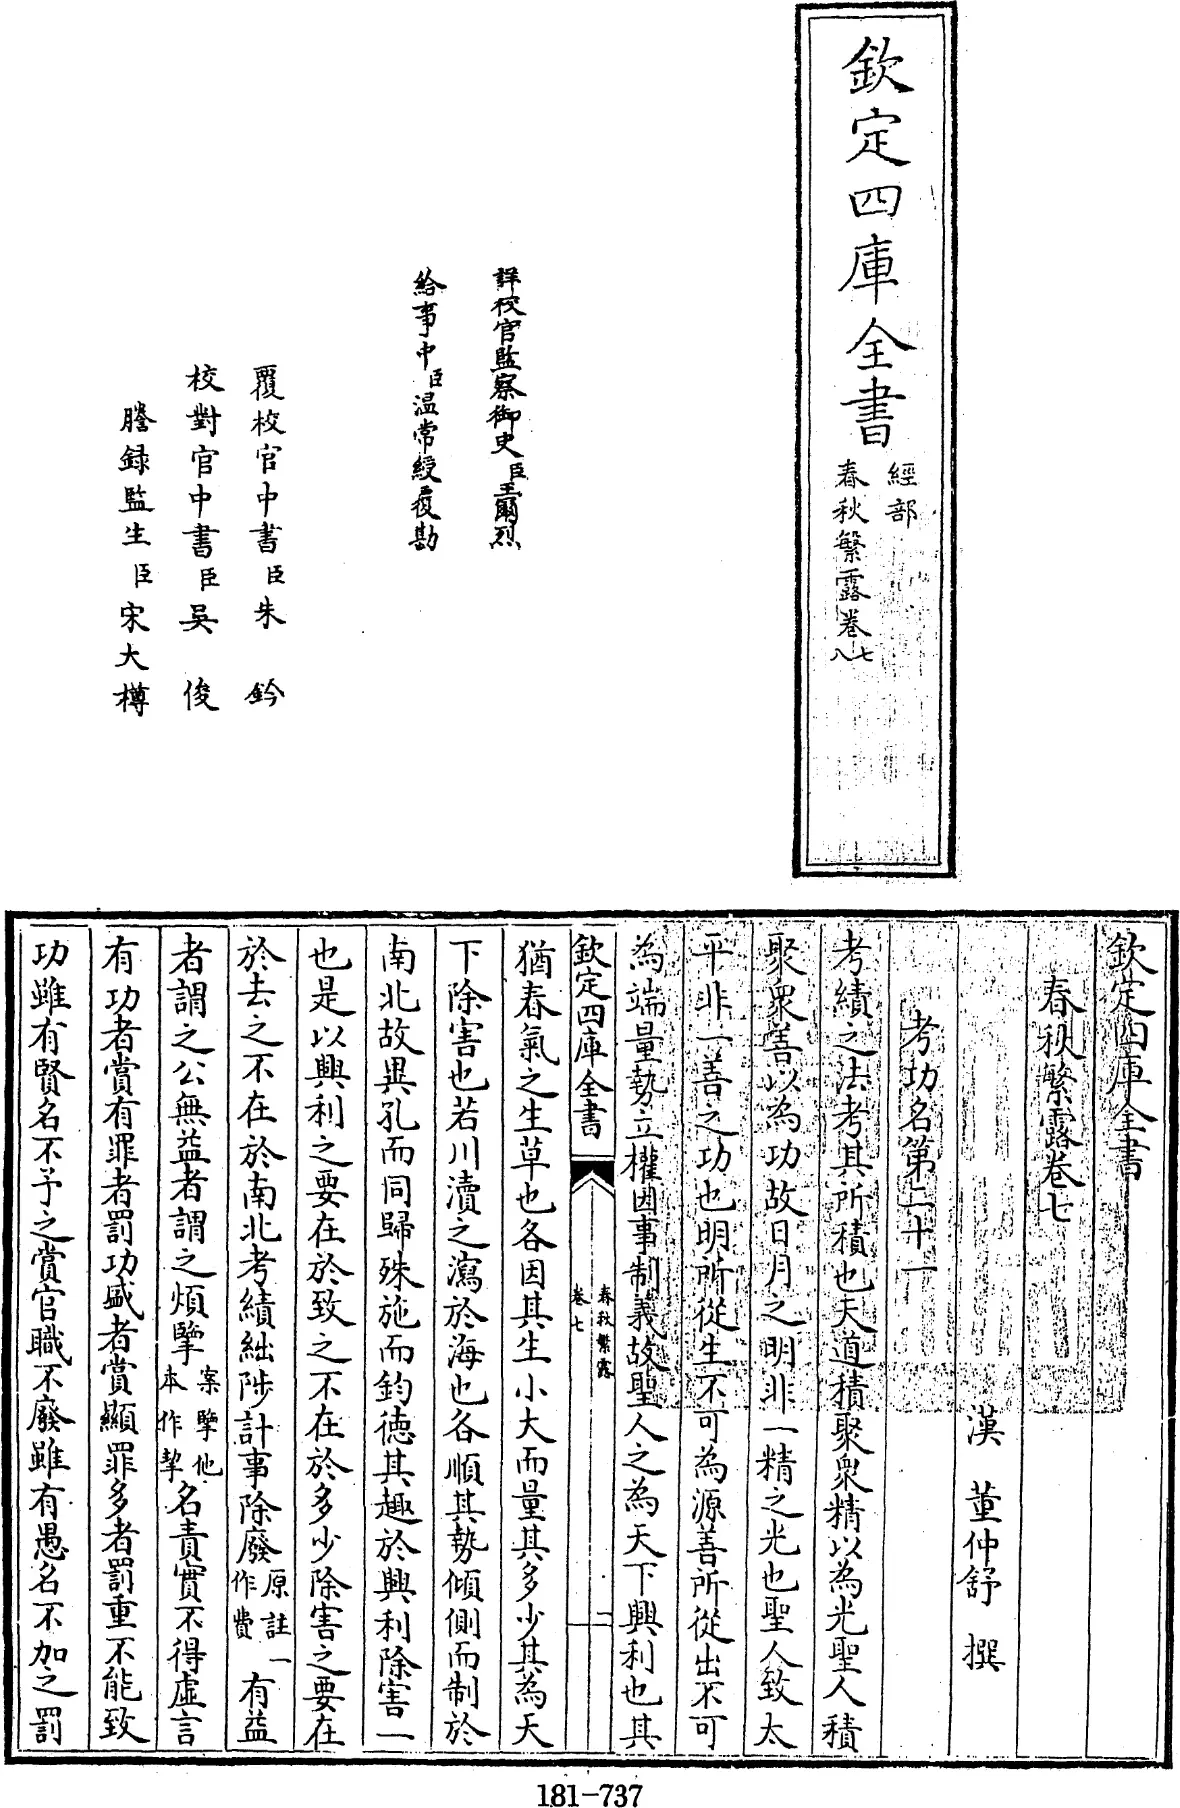 欽定四庫全書
經部
春秋繁露卷七
八
詳校官監察御史臣王爾烈
給事中臣温常綬覆勘
覆校官中書臣朱鈐
校對官中書臣吳俊
謄録監生臣宋大樽
欽定四庫全書
春秋繁露卷七
漢 董仲舒 撰
考功名第二十一
考績之法考其所積也天道積聚衆精以為光聖人積
聚衆善以為功故日月之明非一精之光也聖人致太
平非一善之功也明所從生不可為源善所從出不可
為端量勢立權因事制義故聖人之為天下興利也其
欽定四庫全書
春秋繁露
卷七
二
猶春氣之生草也各因其生小大而量其多少其為天
下除害也若川瀆之瀉於海也各順其勢傾側而制於
南北故異孔而同歸殊施而鈞德其趣於興利除害一
也是以興利之要在於致之不在於多少除害之要在
於去之不在於南北考績絀陟計事除廢原註一作費有益
者謂之公無益者謂之煩擥案擥他本作挈名責實不得虛言
有功者賞有罪者罰功盛者賞顯罪多者罰重不能致
功雖有賢名不予之賞官職不廢雖有愚名不加之罰
181-737